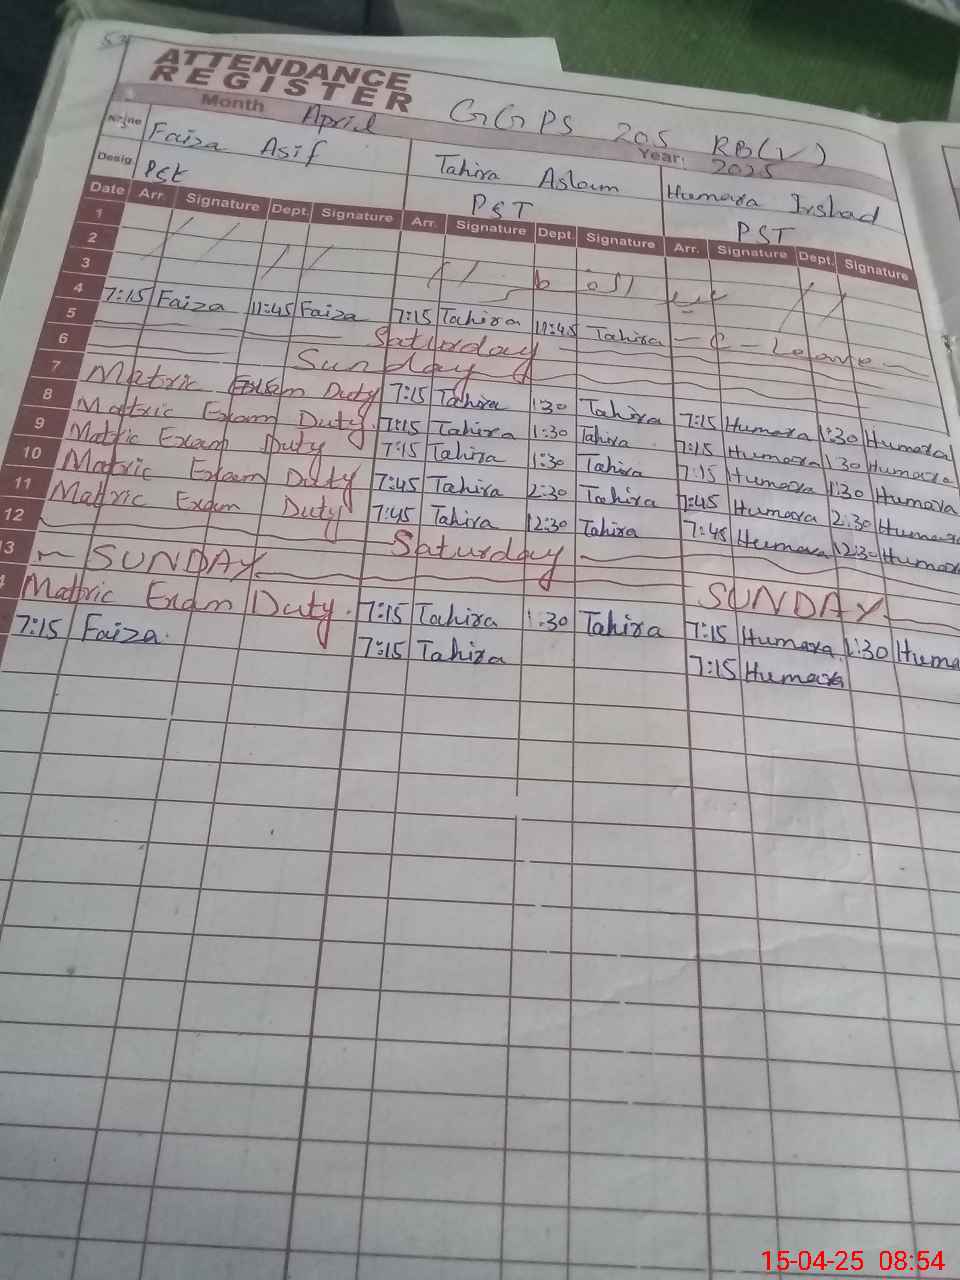 53
ATTENDANCE
REGISTER
GGPS 205 RB(V)
Month April Year: 2025
Name Faiza Asif Tahira Aslam Humara Irshad
Desig. PST PST PST
Date Arr. Signature Dept. Signature Arr. Signature Dept. Signature Arr. Signature Dept. Signature
1
2
3
4 7:15 Faiza 11:45 Faiza 7:15 Tahira 11:45 Tahira - C - Leave -
5 Saturday
6 Sunday
7 Matric Exam Duty 7:15 Tahira 1:30 Tahira 7:15 Humara 1:30 Humara
8 Matric Exam Duty. 7:15 Tahira 1:30 Tahira 7:15 Humara 1:30 Humara
9 Matric Exam Duty 7:15 Tahira 1:30 Tahira 7:15 Humara 1:30 Humara
10 Matric Exam Duty 7:45 Tahira 2:30 Tahira 7:45 Humara 2:30 Humara
11 Matric Exam Duty 7:45 Tahira 12:30 Tahira 7:45 Humara 12:30 Humara
12 Saturday
13 SUNDAY SUNDAY
4 Matric Exam Duty. 7:15 Tahira 1:30 Tahira 7:15 Humara 1:30 Huma
7:15 Faiza. 7:15 Tahira 7:15 Humara
15-04-25 08:54